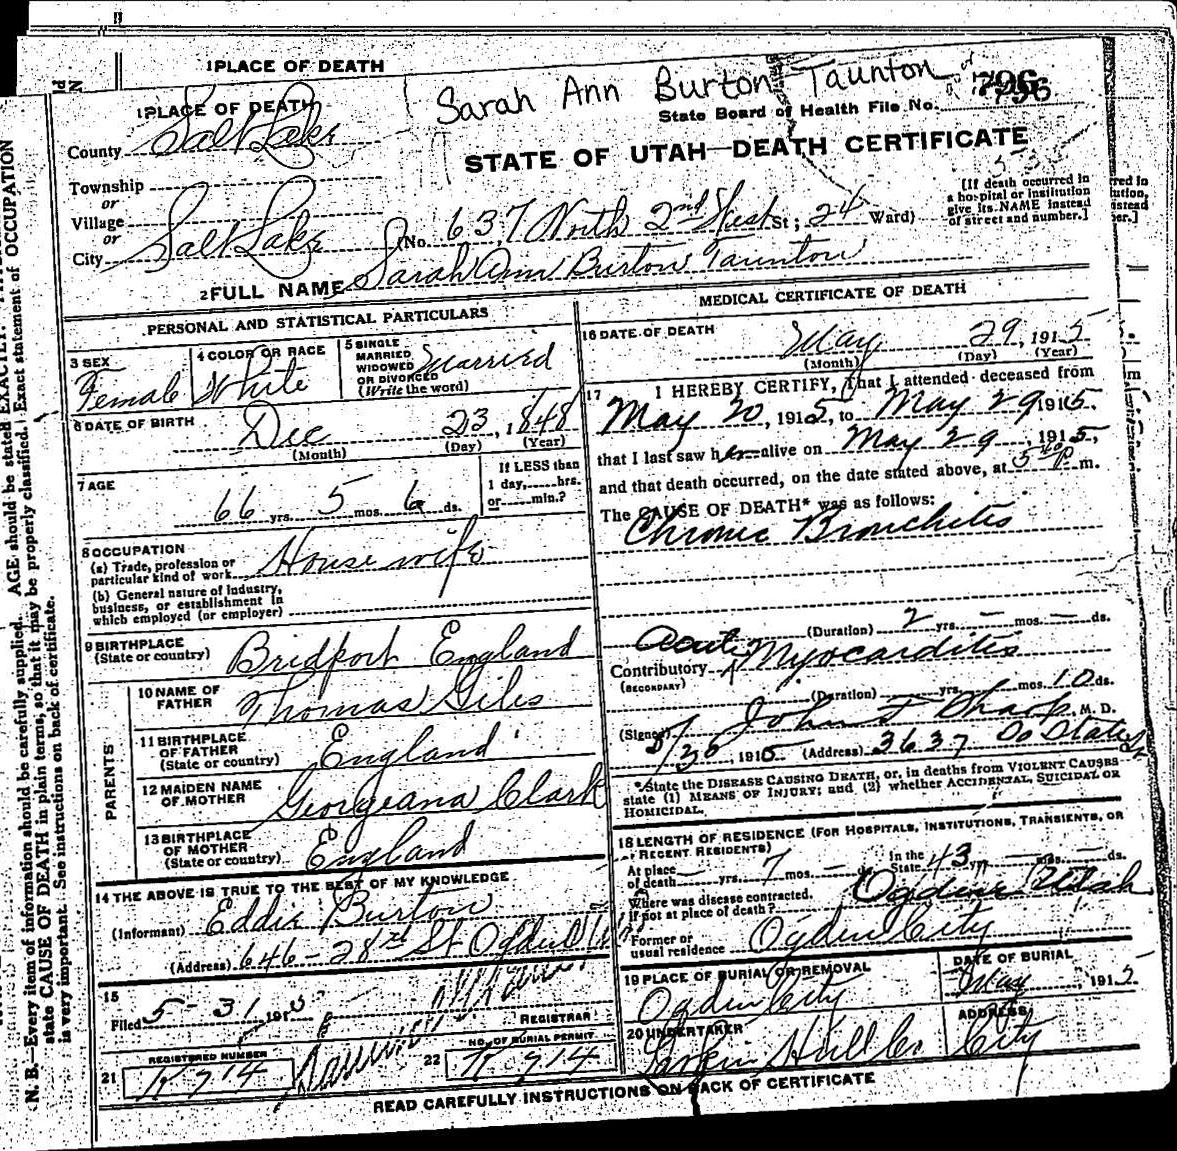 1 PLACE OF DEATH
Sarah Ann Burton Taunton
1 PLACE OF DEATH
State Board of Health File No. 796
County Salt Lake
STATE OF UTAH—DEATH CERTIFICATE
Township
or
Village
or
City Salt Lake (No. 637 North 2nd West St; 24 Ward)
[If death occurred in
a hospital or institution
give its NAME instead
of street and number.]
2 FULL NAME Sarah Ann Burton Taunton
PERSONAL AND STATISTICAL PARTICULARS
3 SEX
Female
4 COLOR OR RACE
White
5 SINGLE
MARRIED
WIDOWED
OR DIVORCED
(Write the word)
Married
6 DATE OF BIRTH
Dec 23, 1848
(Month) (Day) (Year)
7 AGE
66 yrs. 5 mos. 6 ds.
If LESS than
1 day, hrs.
or min.?
8 OCCUPATION
(a) Trade, profession or
particular kind of work House wife
(b) General nature of industry,
business, or establishment in
which employed (or employer)
9 BIRTHPLACE
(State or country)
Bridport England
PARENTS
10 NAME OF
FATHER
Thomas Giles
11 BIRTHPLACE
OF FATHER
(State or country)
England
12 MAIDEN NAME
OF MOTHER
Georgeana Clark
13 BIRTHPLACE
OF MOTHER
(State or country)
England
14 THE ABOVE IS TRUE TO THE BEST OF MY KNOWLEDGE
(Informant) Eddie Burton
(Address) 646-28th St Ogden
15
Filed 5-31 1915
REGISTRAR
REGISTERED NUMBER
21 K 714
NO. OF BURIAL PERMIT
22 K 714
MEDICAL CERTIFICATE OF DEATH
16 DATE OF DEATH
May 29, 1915
(Month) (Day) (Year)
17 I HEREBY CERTIFY, That I attended deceased from
May 20, 1915, to May 29 1915.
that I last saw her alive on May 29, 1915,
and that death occurred, on the date stated above, at 5 40 p m.
The CAUSE OF DEATH* was as follows:
Chronic Bronchitis
(Duration) 2 yrs. — mos. — ds.
Contributory Acute Myocarditis
(SECONDARY)
(Duration) yrs. mos. 10 ds.
(Signed) John T M. D.
5/30, 1915 (Address) 3637 So State St
*State the DISEASE CAUSING DEATH, or, in deaths from VIOLENT CAUSES
state (1) MEANS OF INJURY; and (2) whether ACCIDENTAL, SUICIDAL OR
HOMICIDAL.
18 LENGTH OF RESIDENCE (FOR HOSPITALS, INSTITUTIONS, TRANSIENTS, OR
RECENT RESIDENTS)
At place
of death — yrs. 7 mos. — ds.
In the
State 43 yrs. — mos. — ds.
Where was disease contracted,
if not at place of death? Ogden Utah
Former or
usual residence Ogden City
19 PLACE OF BURIAL OR REMOVAL
Ogden City
DATE OF BURIAL
May, 1915
20 UNDERTAKER
Larkin Hull Co
ADDRESS
City
READ CAREFULLY INSTRUCTIONS ON BACK OF CERTIFICATE
N. B.—Every item of information should be carefully supplied. AGE should be stated EXACTLY.
state CAUSE OF DEATH in plain terms, so that it may be properly classified. Exact statement of OCCUPATION
is very important. See instructions on back of certificate.